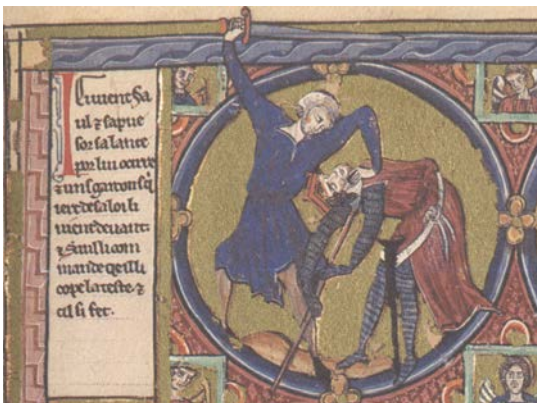 Ici uient Sa
ul ⁊ sapuie
sor sa lance
por lui ocirre
⁊ uns garcons qi
iere de sa loi li
uient deuant
⁊ Saul li com
mande qe il li
cope la teste. ⁊
cil si fet.